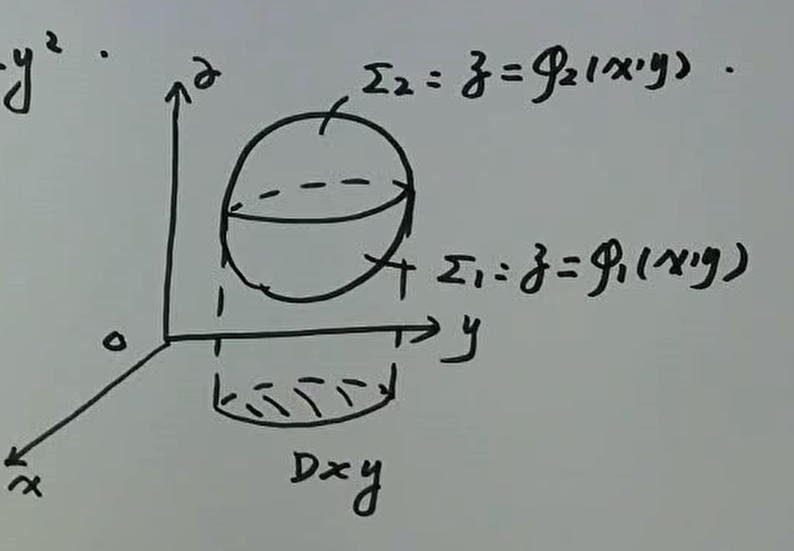 y² .
z
Σ₂ : z = φ₂(x,y) .
Σ₁ : z = φ₁(x,y)
o
y
x
Dxy